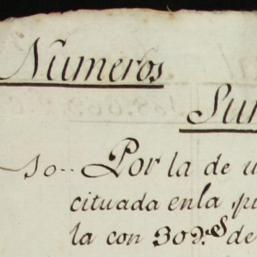 Numeros
Sum
10.. Por la de u
cituada en la pu
la con 309.s de